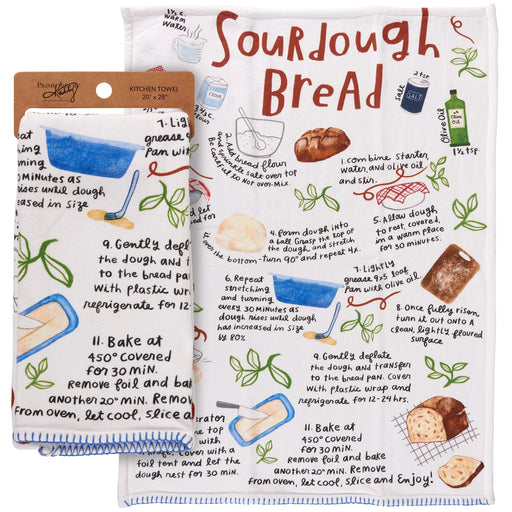 PRIMITIVES BY
Kathy
KITCHEN TOWEL
20" x 28"
7. Ligh
grease 9x5
Pan with
eat
etching
turning
30 minutes as
rises until dough
creased in size
9. Gently defla
the dough and t
to the bread pan.
With plastic wrap
refrigerate for 12-
11. Bake at
450° covered
for 30 min.
Remove foil and bak
another 20° min. Remove
From oven, let cool, slice a
Sourdough
Bread
1 1/3 c.
warm
Water
FLOUR
3 1/2 c.
flour
Salt
2 tsp
SALT
Olive Oil
Olive
Oil
1 1/2 tsp
2. Add bread flour
and sprinkle salt over top
Be careful to not over-mix.
1. Combine starter,
water, and olive oil,
and stir.
nd let
red
for
4. Form dough into
a ball. Grasp the top of
the dough, and stretch
it over the bottom-turn 90° and repeat 4x.
5. Allow dough
to rest, covered,
in a warm place
for 30 minutes.
6. Repeat
stretching
and turning
every 30 minutes as
dough rises until dough
has increased in size
by 80%
7. Lightly
grease 9x5 loaf
Pan with olive oil.
8. Once fully risen,
turn it out onto a
clean, lightly floured
surface
9. Gently deflate
the dough and transfer
to the bread pan. Cover
with plastic wrap and
refrigerate for 12-24 hrs.
erator
e top
with
knife. Cover with a
foil tent and let the
dough rest for 30 min.
11. Bake at
450° covered
for 30 min.
Remove foil and bake
another 20° min. Remove
From oven, let cool, slice and Enjoy!